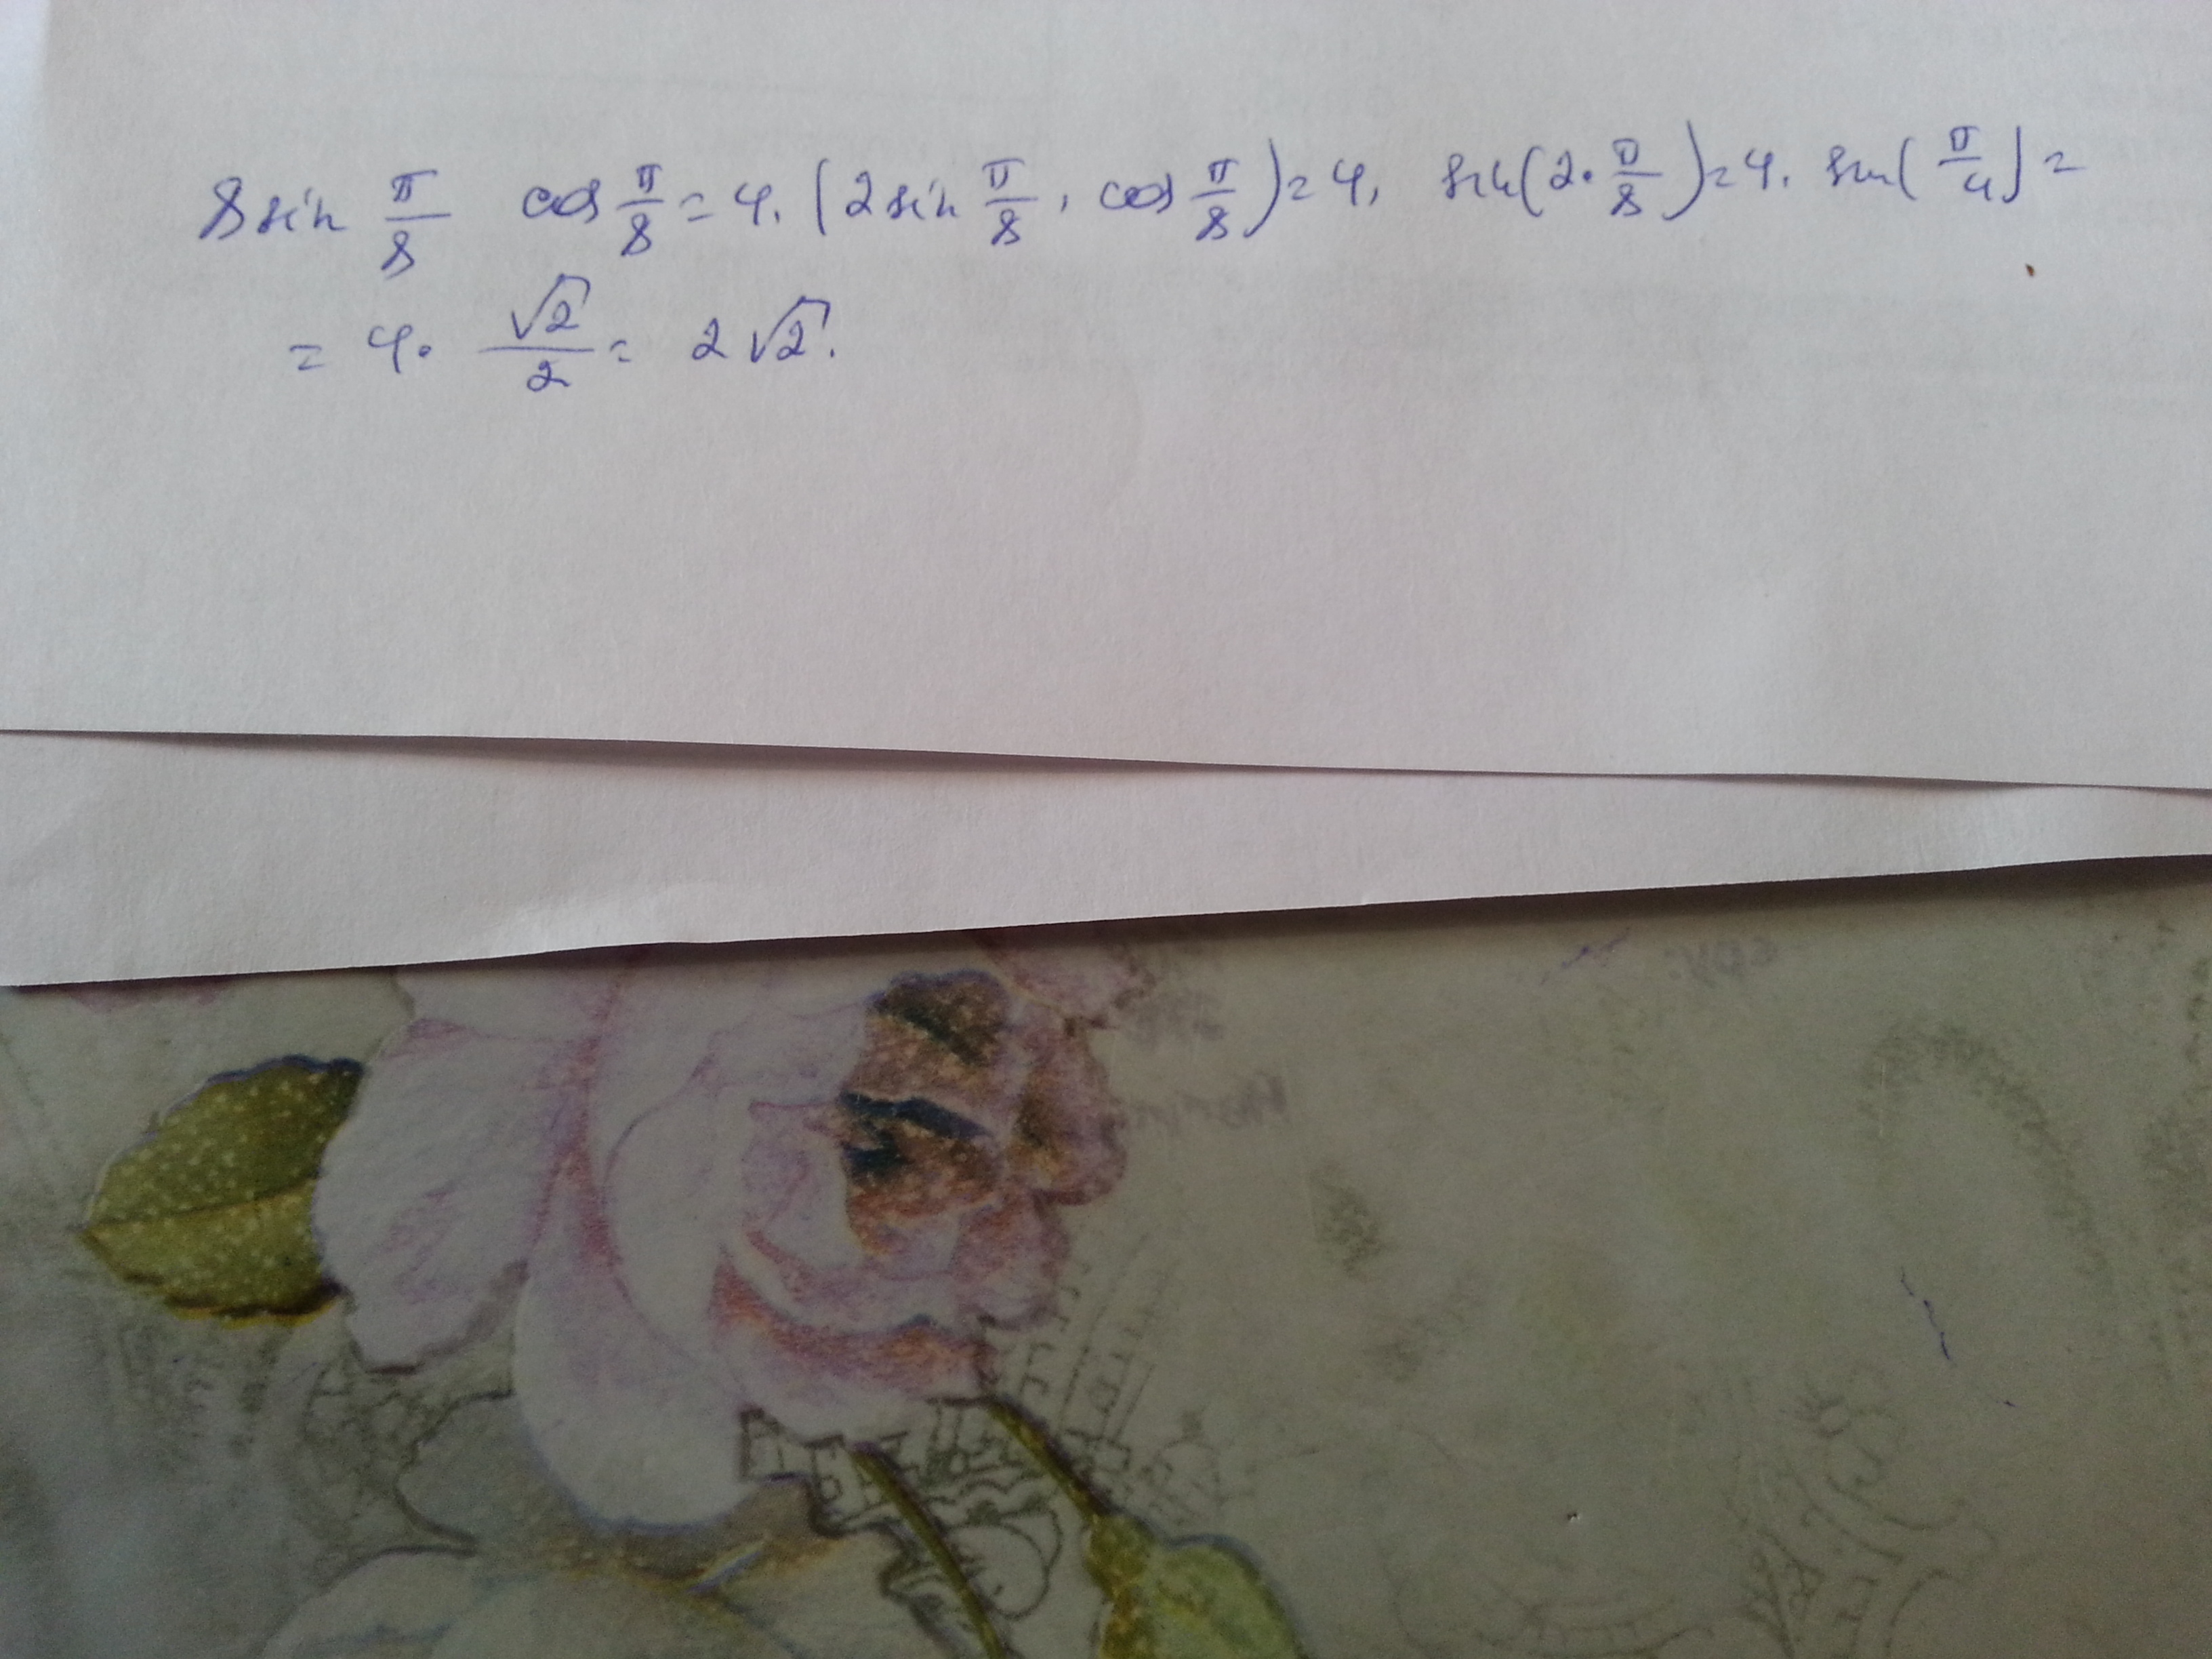 8 sin π/8 cos π/8 = 4 · (2 sin π/8 · cos π/8) = 4 · sin(2 · π/8) = 4 · sin(π/4) =
= 4 · √2/2 = 2√2.